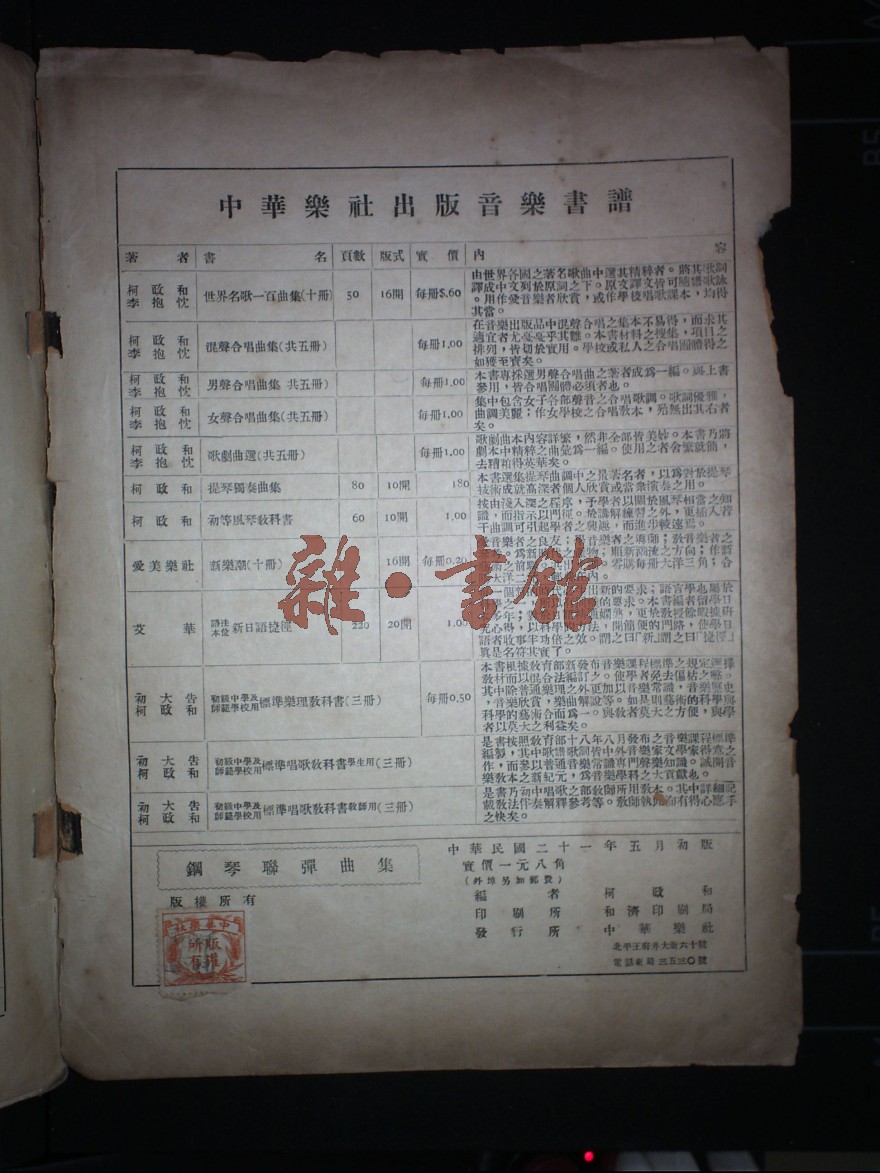 中華樂社出版音樂書譜
著者 書名 頁數 版式 實價 內容
柯政和 李抱忱 世界名歌一百曲集(十冊) 50 16開 每冊$.60
由世界各國之著名歌曲中選其精粹者。將其歌詞
譯成中文列於原詞之下。原文譯文皆可隨譜歌詠
。用作愛音樂者欣賞,或作學校唱歌課本,均得
其當。
柯政和 李抱忱 混聲合唱曲集(共五冊) 每冊1,00
在音樂出版品中混聲合唱之集本不易得,而求其
適宜者尤戛戛乎其難。本書材料之搜集,項目之
排列,皆切於實用。學校或私人之合唱團體得之
如獲至寶矣。
柯政和 李抱忱 男聲合唱曲集 共五冊) 每冊1,00
本書專採選男聲合唱曲之著者成為一編。與上書
參用,皆合唱團體必須者也。
柯政和 李抱忱 女聲合唱曲集(共五冊) 每冊1,00
集中包含女子各部聲音之合唱歌調。歌詞優雅,
曲調美麗;作女學校之合唱教本,殆無出其右者
矣。
柯政和 李抱忱 歌劇曲選(共五冊) 每冊1,00
歌劇曲本內容詳繁,然非全部皆美妙。本書乃將
劇本中精粹之曲彙為一編。使用之者舍繁就簡,
去糟粕得英華矣。
柯政和 提琴獨奏曲集 80 10開 180
本書選集提琴曲調中之最著名者,以為對於提琴
技術成就高深者個人欣賞或當衆演奏之用。
柯政和 初等風琴教科書 60 10開 1,00
按由淺入深之程序,予學者以關於風琴相當之知
識,而指示以門徑。於講解練習之外,更插入若
干曲調可引起學者之興趣,而進步較速焉。
愛美樂社 新樂潮(十冊) 16開 每冊0,20
愛音樂者之良友;學音樂者之導師;教音樂者之
零購每冊大洋三角;合
艾華 語法本位新日語捷徑 220 20開 1,00
出新的要求;語言學也屬於
的要求。本書編者留學日
開簡便的門路,使學日
語者收事半功倍之效。謂之曰「新」謂之曰「捷徑」
真是名符其實了。
初大告 柯政和 初級中學及師範學校用標準樂理教科書(三冊) 每冊0,50
本書根據教育部新發布音樂課程標準之規定選擇
教材而以混合法編訂之。使學者免去偏枯之弊。
其中除普通樂理之外更加以音樂常識,音樂歷史
,音樂欣賞,樂曲解說等。如是則藝術的科學與
科學的藝術合而為一。與教者莫大之方便,與學
者以莫大之利益矣。
初大告 柯政和 初級中學及師範學校用標準唱歌教科書學生用(三冊)
是書按照教育部十八年八月發布之音樂課程標準
編製,其中歌譜歌詞皆中外音樂家文學家得意之
作,而參以普通音樂常識專門聲樂知識。誠開音
樂教本之新紀元,為音樂學科之大貢獻也。
初大告 柯政和 初級中學及師範學校用標準唱歌教科書教師用(三冊)
是書乃初中唱歌之部教師所用教本。其中詳細記
載教法伴奏解釋參考等。教師執此自有得心應手
之快矣。
雜·書館
鋼琴聯彈曲集
版權所有
中華樂社
版權所有
中華民國二十一年五月初版
實價一元八角
(外埠另加郵費)
編者 柯政和
印刷所 和濟印刷局
發行所 中華樂社
北平王府井大街六十號
電話東局三五三〇號